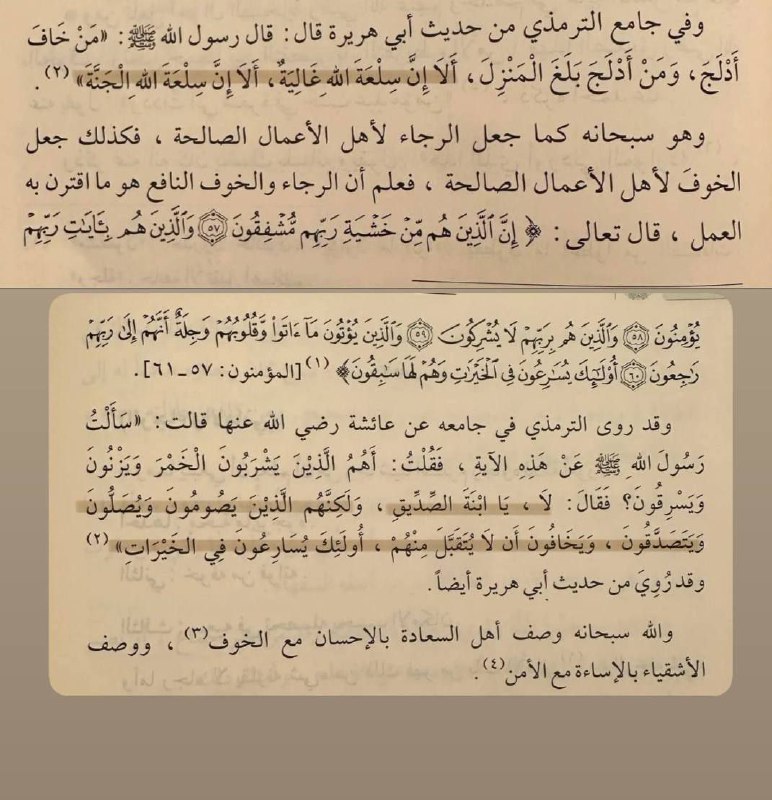 وفي جامع الترمذي من حديث أبي هريرة قال: قال رسول الله ﷺ: «مَنْ خَافَ
أَدْلَجَ، وَمَنْ أَدْلَجَ بَلَغَ الْمَنْزِلَ، أَلَا إِنَّ سِلْعَةَ اللهِ غَالِيَةٌ، أَلَا إِنَّ سِلْعَةَ اللهِ الْجَنَّةَ»(٢).
وهو سبحانه كما جعل الرجاء لأهل الأعمال الصالحة ، فكذلك جعل
الخوفَ لأهل الأعمال الصالحة ، فعلم أن الرجاء والخوف النافع هو ما اقترن به
العمل ، قال تعالى: ﴿إِنَّ ٱلَّذِينَ هُم مِّنْ خَشْيَةِ رَبِّهِم مُّشْفِقُونَ ٥٧ وَٱلَّذِينَ هُم بِـَٔايَـٰتِ رَبِّهِمْ
يُؤْمِنُونَ ٥٨ وَٱلَّذِينَ هُم بِرَبِّهِمْ لَا يُشْرِكُونَ ٥٩ وَٱلَّذِينَ يُؤْتُونَ مَآ ءَاتَوا۟ وَّقُلُوبُهُمْ وَجِلَةٌ أَنَّهُمْ إِلَىٰ رَبِّهِمْ
رَٰجِعُونَ ٦٠ أُو۟لَـٰٓئِكَ يُسَـٰرِعُونَ فِى ٱلْخَيْرَٰتِ وَهُمْ لَهَا سَـٰبِقُونَ﴾(١) [المؤمنون: ٥٧ـ٦١].
وقد روى الترمذي في جامعه عن عائشة رضي الله عنها قالت: «سَأَلْتُ
رَسُولَ اللهِ ﷺ عَنْ هَذِهِ الآيةِ ، فَقُلْتُ: أَهُمُ الَّذِيْنَ يَشْرَبُونَ الْخَمْرَ وَيَزْنُونَ
وَيَسْرِقُونَ؟ فَقَالَ: لَا ، يَا ابْنَةَ الصِّدِّيقِ ، وَلَكِنَّهُم الَّذِيْنَ يَصُومُونَ وَيُصَلُّونَ
وَيَتَصَدَّقُونَ ، وَيَخَافُونَ أَن لَا يُتَقَبَّلَ مِنْهُمْ ، أُولَئِكَ يُسَارِعُونَ فِي الْخَيْرَاتِ»(٢)
وقد رُوِيَ من حديث أبي هريرة أيضاً.
والله سبحانه وصف أهل السعادة بالإحسان مع الخوف(٣) ، ووصف
الأشقياء بالإساءة مع الأمن(٤).